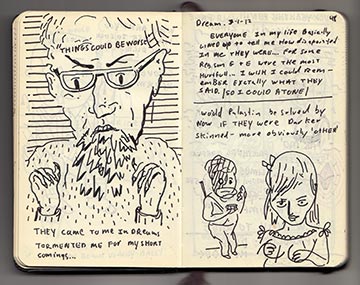 "THINGS COULD BE WORSE"
THEY CAME TO ME IN DREAMS
TORMENTED ME FOR MY SHORT
COMINGS...
DREAM. 3-4-12
48
EVERYONE IN MY LIFE BASICLY
LINED UP TO TELL ME HOW DISAPPOINTED
IN ME THEY WERE... FOR SOME
REASON E + E WERE THE MOST
HURTFUL.. I WISH I COULD REM-
EMBER EXACTLY WHAT THEY
SAID. (SO I COULD ATONE)
WOULD PALASTIN BE SOLVED BY
NOW IF THEY WERE DARKER
SKINNED - MORE OBVIOUSLY 'OTHER'